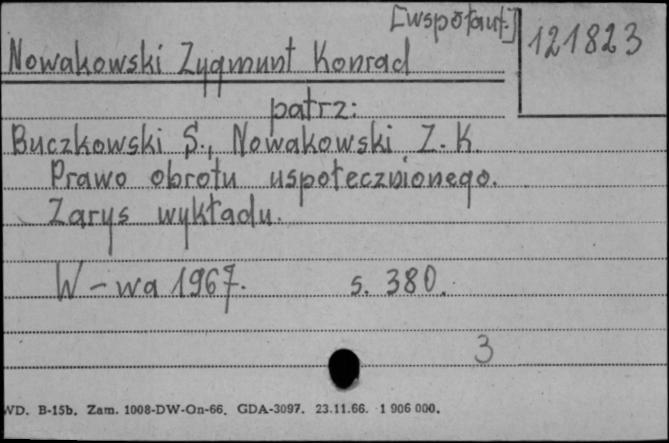 [współaut.]
121823
Nowakowski Zygmunt Konrad
patrz:
Buczkowski S., Nowakowski Z. K.
Prawo obrotu uspołecznionego.
Zarys wykładu.
W-wa 1967. s. 380.
3
WD. B-15b. Zam. 1008-DW-On-66. GDA-3097. 23.11.66. 1 906 000.